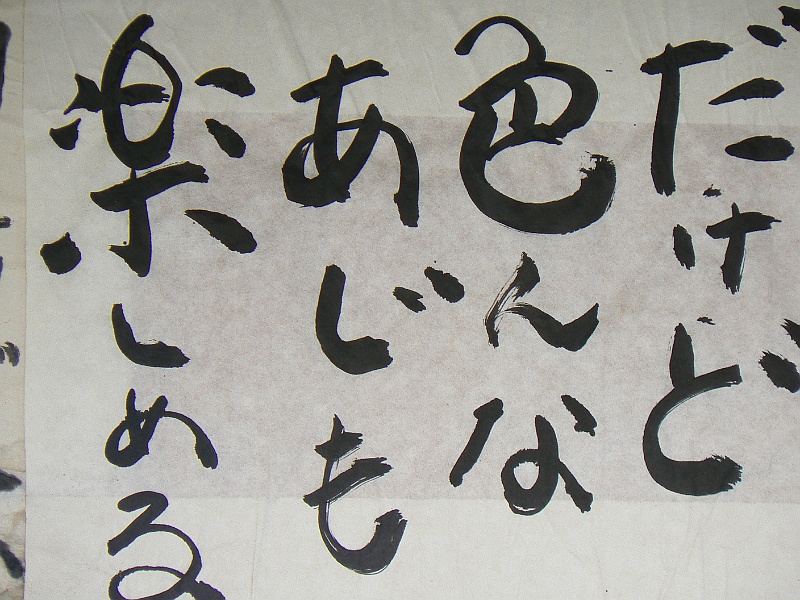 だけど
色んな
あじも
楽しめる